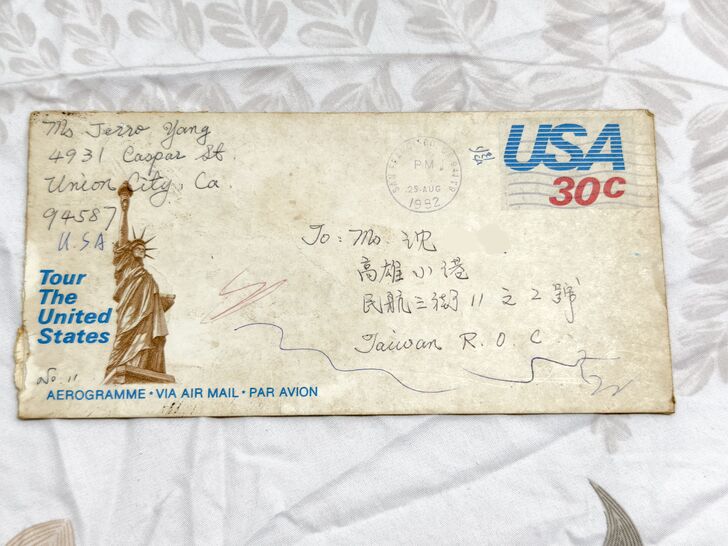 Ms Jerro Yang
4931 Caspar St.
Union City, Ca
94587
U.S.A
Tour
The
United
States
No. 11
AEROGRAMME • VIA AIR MAIL • PAR AVION
PM
29 AUG
1992
USA
30c
To: Ms 沈
高雄小港
民航三街11之2號
Taiwan R.O.C